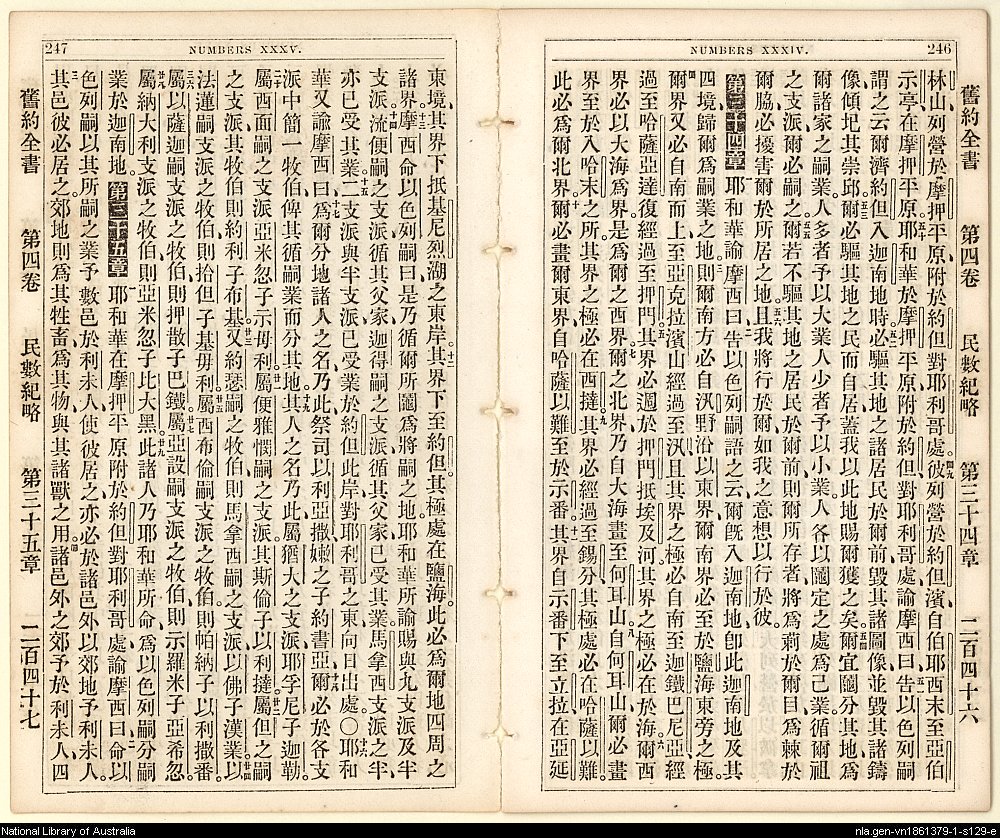 NUMBERS XXXIV.
246
舊約全書 第四卷 民數紀略 第三十四章 二百四十六
林山列營於摩押平原附於約但對耶利哥處彼列營於約但濱自伯耶西末至亞伯
示亭在摩押平原耶和華於摩押平原附於約但對耶利哥處諭摩西曰告以色列嗣
謂之云爾濟約但入迦南地時必驅其地之諸居民於爾前毀其諸圖像並毀其諸鑄
像傾圮其崇邱爾必驅其地之民而自居蓋我以此地賜爾獲之矣爾宜鬮分其地爲
爾諸家之嗣業人多者予以大業人少者予以小業人各以鬮定之處爲己業循爾祖
之支派爾必嗣之爾若不驅其地之居民於爾前則爾所存者將爲莿於爾目爲棘於
爾脇必擾害爾於所居之地且我將行於爾如我之意想以行於彼
第三十四章 耶和華諭摩西曰告以色列嗣語之云爾旣入迦南地卽此迦南地及其
四境歸爾爲嗣業之地則爾南方必自汛野沿以東界爾南界必至於鹽海東旁之極
爾界又必自南而上至亞克拉濱山經過至汛且其界之極必自南至迦鐵巴尼亞經
過至哈薩亞達復經過至押門其界必週於押門抵埃及河其界之極必在於海爾西
界必以大海爲界是爲爾之西界爾之北界乃自大海畫至何耳山自何耳山爾必畫
界至於入哈末之所其界之極必在西撻其界必經過至錫分其極處必在哈薩以難
此必爲爾北界爾必畫爾東界自哈薩以難至於示番其界自示番下至立拉在亞延
247
NUMBERS XXXV.
東境其界下抵基尼烈湖之東岸其界下至約但其極處在鹽海此必爲爾地四周之
諸界摩西命以色列嗣曰是乃循爾所鬮爲將嗣之地耶和華所諭賜與九支派及半
支派流便嗣之支派循其父家迦得嗣之支派循其父家已受其業馬拿西支派之半
亦已受其業二支派與半支派已受業於約但此岸對耶利哥之東向日出處〇耶和
華又諭摩西曰爲爾分地諸人之名乃此祭司以利亞撒嫩之子約書亞爾必於各支
派中簡一牧伯俾其循嗣業而分其地其人之名乃此屬猶大之支派耶孚尼子迦勒
屬西面嗣之支派亞米忽子示毋利屬便雅憫嗣之支派其斯倫子以利撻屬但之嗣
之支派其牧伯則約利子布基又約瑟嗣之牧伯則馬拿西嗣之支派以佛子漢業以
法蓮嗣支派之牧伯則拾但子基毋利屬西布倫嗣支派之牧伯則帕納子以利撒番
屬以薩迦嗣支派之牧伯則押散子巴鐵屬亞設嗣支派之牧伯則示羅米子亞希忽
屬納大利支派之牧伯則亞米忽子比大黑此諸人乃耶和華所命爲以色列嗣分嗣
業於迦南地 第三十五章 耶和華在摩押平原附於約但對耶利哥處諭摩西曰命以
色列嗣以其所嗣之業予數邑於利未人使彼居之亦必於諸邑外以郊地予利未人
其邑彼必居之郊地則爲其牲畜爲其物與其諸獸之用諸邑外之郊予於利未人四
舊約全書 第四卷 民數紀略 第三十五章 二百四十七
National Library of Australia
nla.gen-vn1861379-1-s129-e